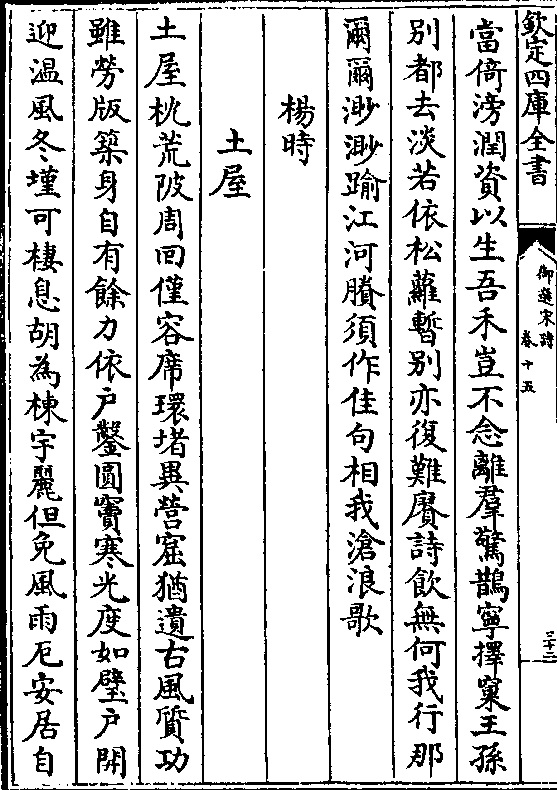 欽定四庫全書
御選宋詩
卷十五
三十二
當倚滂潤資以生吾禾豈不念離羣驚鵲寧擇窠王孫
別都去淡若依松蘿暫別亦復難賡詩飲無何我行那
爾爾渺渺踰江河賸須作佳句相我滄浪歌
楊時
土屋
土屋枕荒陂周回僅容席環堵異營窟猶遺古風質功
雖勞版築身自有餘力依戶鑿圓竇寒光度如璧戶開
迎温風冬墐可棲息胡為棟宇麗但免風雨厄安居自